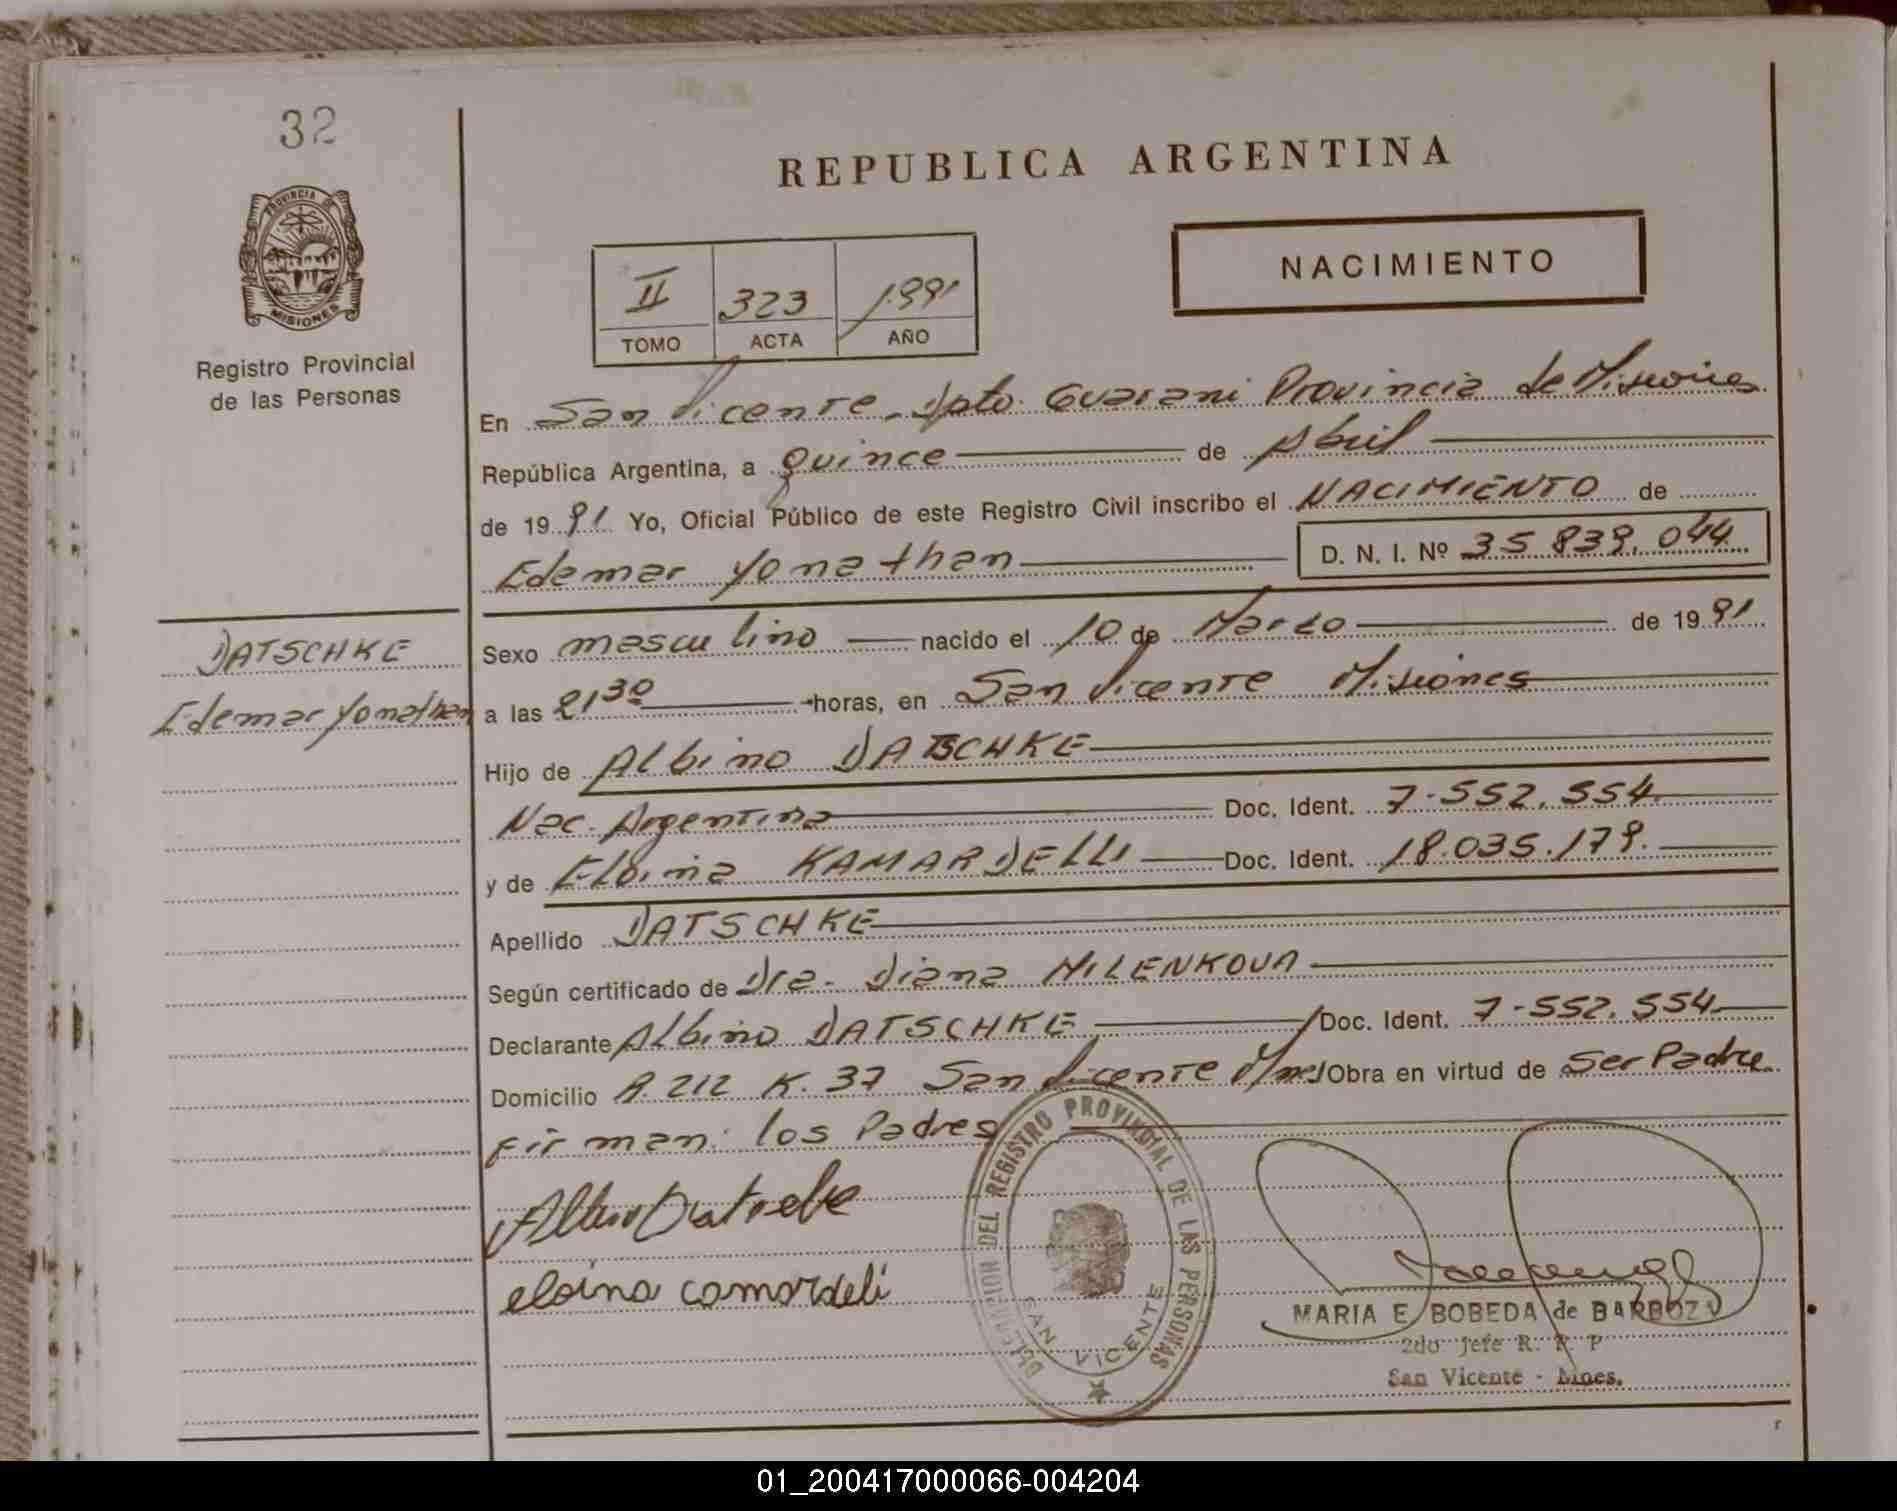 32
PROVINCIA DE
MISIONES
Registro Provincial
de las Personas
DATSCHKE
Edemar Yonathan
REPUBLICA ARGENTINA
NACIMIENTO
II 323 1991
TOMO ACTA AÑO
En San Vicente, Dpto. Guarani Provincia de Misiones
República Argentina, a quince de Abril
de 1991 Yo, Oficial Público de este Registro Civil inscribo el NACIMIENTO de
Edemar Yonathan D. N. I. Nº 35 839.044
Sexo masculino nacido el 10 de Marzo de 1991
a las 21 30 horas, en San Vicente Misiones
Hijo de Albino DATSCHKE
Nac. Argentina Doc. Ident. 7.552.554.
y de Elbina KAMARDELLI Doc. Ident. 18.035.179.
Apellido DATSCHKE
Según certificado de Dra. Diana MILENKOVA
Declarante Albino DATSCHKE Doc. Ident. 7.552.554.
Domicilio R. 212 K. 37 San Vicente Mnes/Obra en virtud de Ser Padre
Firman: los Padres
Albino Datschke
elbina camardeli
DELEGACION DEL REGISTRO PROVINCIAL DE LAS PERSONAS
SAN VICENTE
MARIA E BOBEDA de BARBOZA
2do Jefe R. P. P
San Vicente - Mnes.
01_200417000066-004204